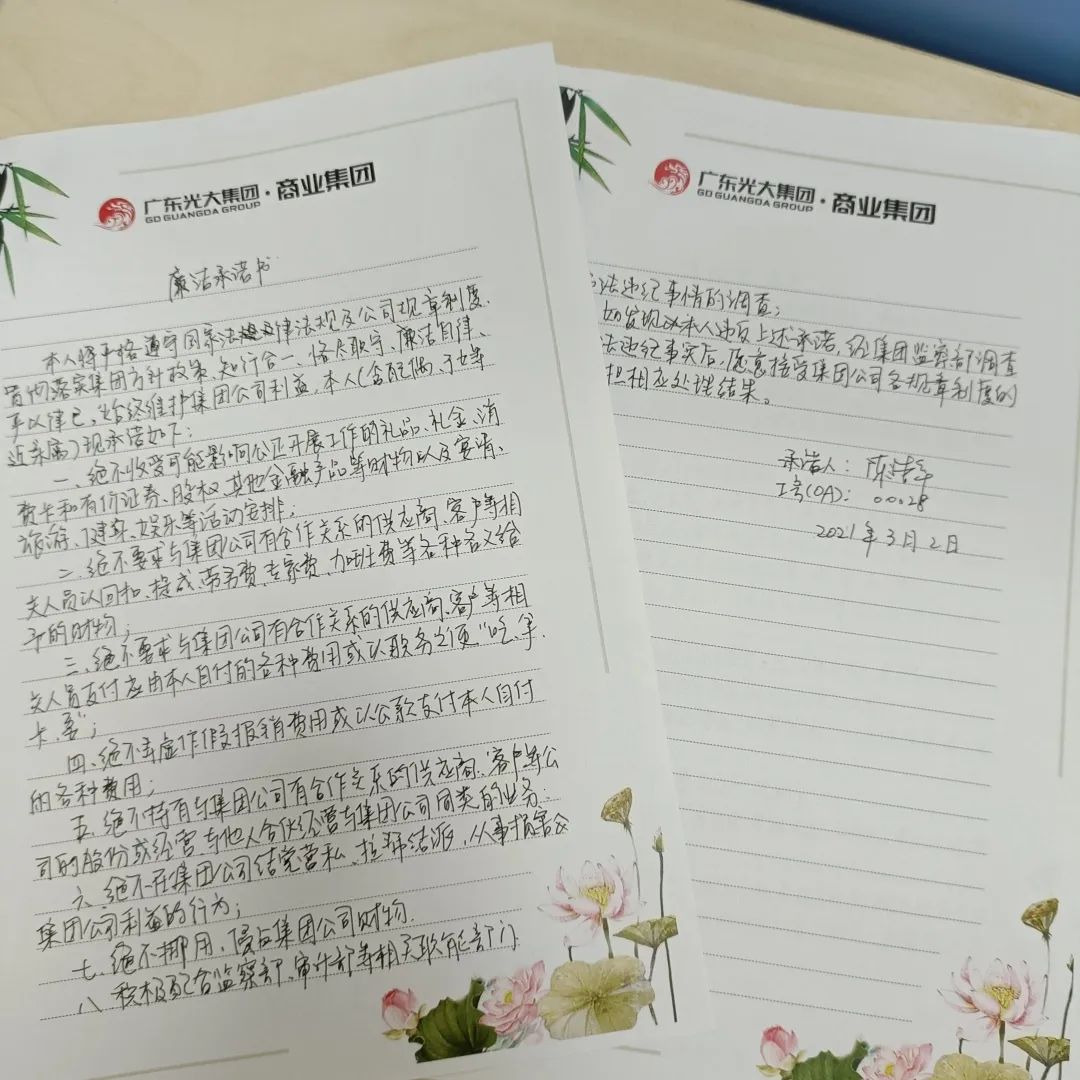 广东光大集团·商业集团
GD GUANGDA GROUP
廉洁承诺书
本人将严格遵守国家法律法规及公司规章制度、
贯彻落实集团方针政策、知行合一、恪尽职守、廉洁自律、
平以律己、始终维护集团公司利益，本人(含配偶、子女等
近亲属)现承诺如下：
一、绝不收受可能影响公正开展工作的礼品、礼金、消
费卡和有价证券、股权、其他金融产品等财物以及宴请、
旅游、健身、娱乐等活动安排；
二、绝不要求与集团公司有合作关系的供应商、客户等相
关人员以回扣、提成、劳务费、专家费、加班费等各种名义给
予的财物；
三、绝不要求与集团公司有合作关系的供应商、客户等相
关人员支付应由本人自付的各种费用或以职务之便"吃、拿、
卡、要"；
四、绝不弄虚作假报销费用或以公款支付本人自付
的各种费用；
五、绝不持有与集团公司有合作关系的供应商、客户等公
司的股份或经营与他人合伙经营与集团公司同类的业务；
六、绝不在集团公司结党营私、拉帮结派，从事损害
集团公司利益的行为；
七、绝不挪用、侵占集团公司财物.
八、积极配合监察部、审计部等相关职能部门
广东光大集团·商业集团
GD GUANGDA GROUP
法违纪事情的调查；
如发现本人违反上述承诺，经集团监察部调查
法违纪事实后，愿意接受集团公司各规章制度的
担相应处理结果。
承诺人：陈
工号(OA)：00028
2021年3月2日